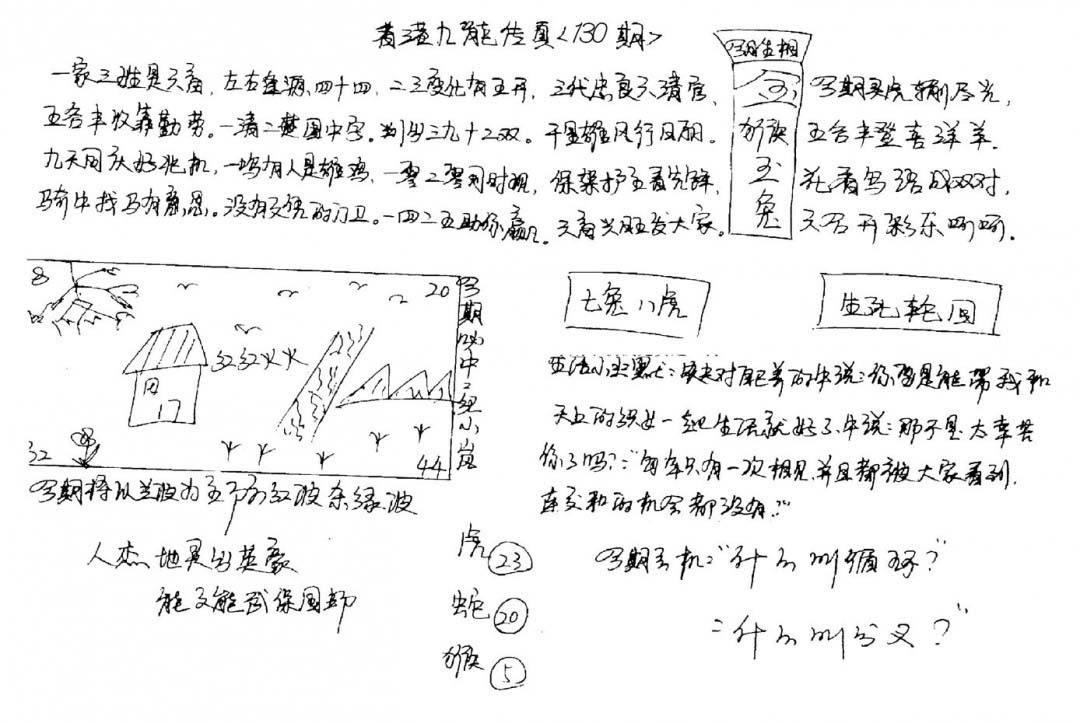 香港九龍传真<130期>
一家三姓是天音,左右逢源四十四,二三变化有五开,三代忠良天清官,
五谷丰收靠勤劳。一清二楚图中字。判出三九十二双。干是雄风行风雨。
九天同庆好兆机,一鸣有人是雄鸡,一零二零同时现,保架护主看先锋,
马年中找马有意思。没有文凭的门卫。一四二五助你赢。天音兴旺发大家。
写期生相
金猴玉兔
写期买虎输尽光,
五谷丰登喜洋羊。
花香鸟语成双对,
天召开彩乐呵呵。
8
20
红红火火
田
17
32
44
写期必中:组小岚
七兔八虎
生死轮回
写期将以兰波为主命红波余绿波
人杰地灵出英豪
能文能武保国邦
生活小幽默:对面的牛说:你要是能带我和
天上的织女一起生活就好了.牛说:那不是太辛苦
你了吗?:"每年只有一次相见并且都被大家看到.
连交和的机会都没有."
虎 23
蛇 20
猴 5
写期玄机:"什么叫循环?"
:"什么叫分叉?"